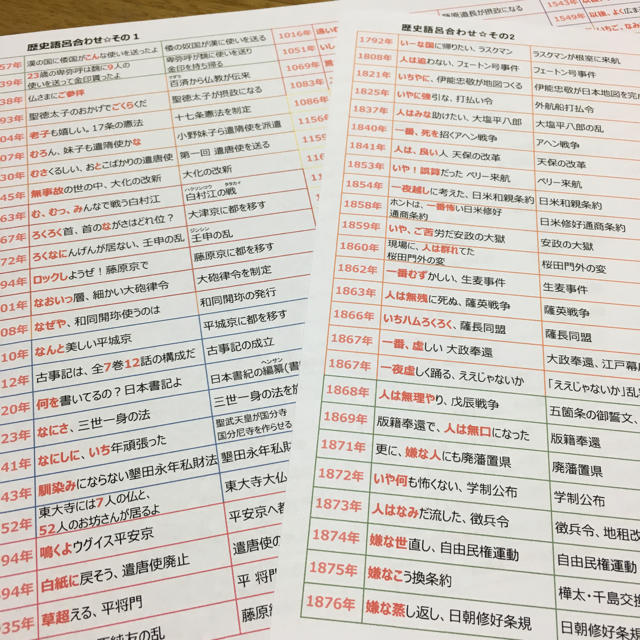 歴史語呂合わせ☆その1
57年 漢の国に倭国がこんな使いを送ったよ 倭の奴国が漢に使いを送る
239年 23歳の卑弥呼は魏に9人の使いを送って金印貰ったよ 卑弥呼が魏に使いを送り金印を持ち帰る
38年 仏さまにご参拝 百済から仏教が伝来
93年 聖徳太子のおかげでごくらくだ 聖徳太子が摂政になる
04年 老子も嬉しい。17条の憲法 十七条憲法を制定
07年 むろん、妹子も遣隋使かな 小野妹子ら遣隋使を派遣
30年 むさくるしい、おとこばかりの遣唐使 第一回 遣唐使を送る
45年 無事故の世の中、大化の改新 大化の改新
63年 む、むっ、みんなで戦う白村江 白村江の戦 ハクソンコウ タタカイ
67年 ろくろく首、首のながさはどれ位? 大津京に都を移す
72年 ろくなにんげんが居ない、壬申の乱 壬申の乱 ジンシン
94年 ロックしようぜ!藤原京で 藤原京に都を移す
01年 なおいっ層、細かい大砲律令 大砲律令を制定
08年 なぜや、和同開珎使うのは 和同開珎の発行
10年 なんと美しい平城京 平城京に都を移す
12年 古事記は、全7巻12話の構成だ 古事記の成立
20年 何を書いてるの?日本書紀よ 日本書紀の編纂 ヘンサン
23年 なにさ、三世一身の法 三世一身の法を
41年 なにしに、いち年頑張った 聖武天皇が国分寺国分尼寺を作らせる
43年 馴染みにならない墾田永年私財法 墾田永年私財法
52年 東大寺には7人の仏と、52人のお坊さんが居るよ 東大寺大仏
94年 鳴くよウグイス平安京 平安京へ都
94年 白紙に戻そう、遣唐使廃止 遣唐使の
35年 草超える、平将門 平 将門
友の乱 藤原
1016年
1051年
1069年
1083年
1086年
藤原道長が摂政になる
1543年
1549年 以後、よく広ま
歴史語呂合わせ☆その2
1792年 いーな国に帰りたい、ラスクマン ラスクマンが根室に来航
1808年 人は追わない、フェートン号事件 フェートン号事件
1821年 いちやに、伊能忠敬が地図つくる 伊能忠敬が日本地図を完成
1825年 いちやに強引な、打払い令 外航船打払令
1837年 人はみな助けたい、大塩平八郎 大塩平八郎の乱
1840年 一番、死を招くアヘン戦争 アヘン戦争
1841年 人は、良い人 天保の改革 天保の改革
1853年 いや!誤算だった ペリー来航 ペリー来航
1854年 一夜越しに考えた、日米和親条約 日米和親条約
1858年 ホントは、一番怖い日米修好通商条約 日米修好通商条約
1859年 いや、ご苦労だ安政の大獄 安政の大獄
1860年 現場に、人は群れてた桜田門外の変 桜田門外の変
1862年 一番むずかしい、生麦事件 生麦事件
1863年 人は無残に死ぬ、薩英戦争 薩英戦争
1866年 いちハムろくろく、薩長同盟 薩長同盟
1867年 一番、虚しい 大政奉還 大政奉還、江戸幕府
1867年 一夜虚しく踊る、ええじゃないか 「ええじゃないか」乱
1868年 人は無理やり、戊辰戦争 五箇条の御誓文、
1869年 版籍奉還で、人は無口になった 版籍奉還
1871年 更に、嫌な人にも廃藩置県 廃藩置県
1872年 いや何も怖くない、学制公布 学制公布
1873年 人はなみだ流した、徴兵令 徴兵令、地租改
1874年 嫌な世直し、自由民権運動 自由民権運動
1875年 嫌なこう換条約 樺太・千島交換
1876年 嫌な蒸し返し、日朝修好条規 日朝修好条規